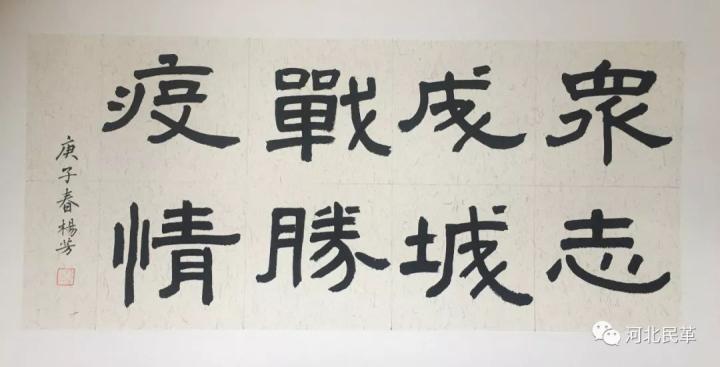 眾志
成城
戰勝
疫情
庚子春楊芳
河北民革